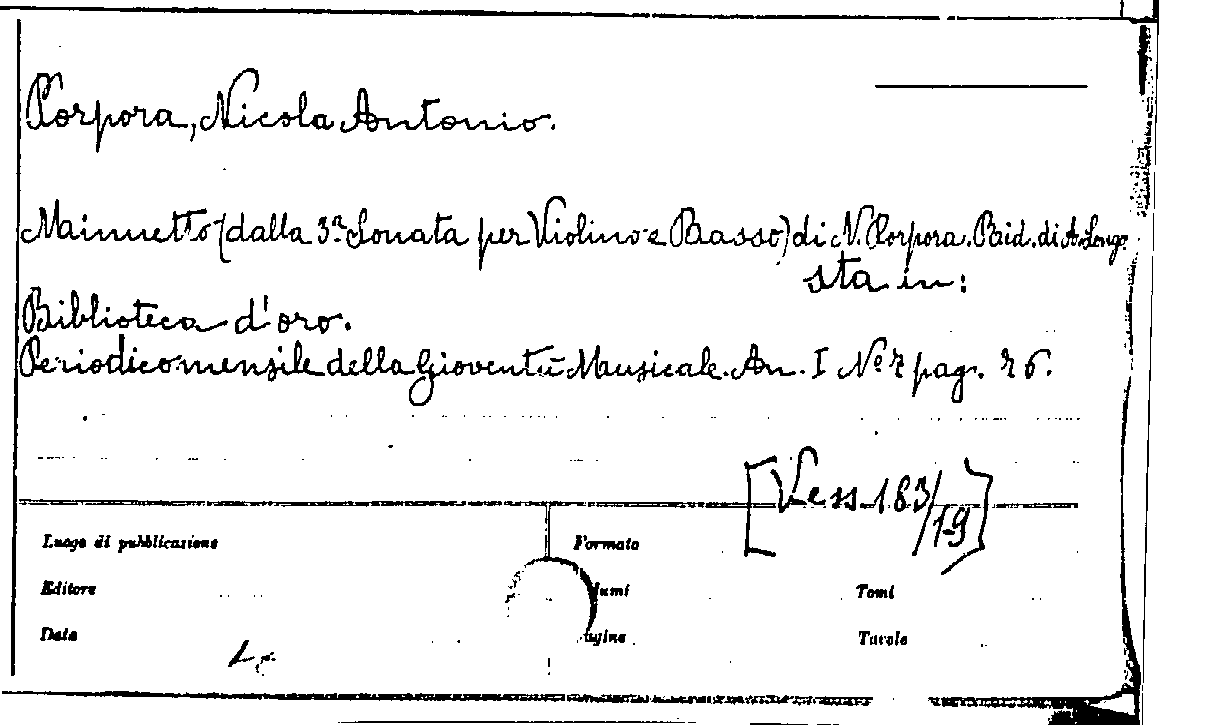 Porpora, Nicola Antonio.
Minuetto (dalla 3ª Sonata per Violino e Basso) di N. Porpora. Rid. di A. Longo.
sta in:
Biblioteca d'oro.
Periodico mensile della Gioventù Musicale. An. I Nº 2 pag. 26.
[Vess. 183/19]
Luogo di pubblicazione
Formato
Editore
lumi
Tomi
Data
agine
Tavole